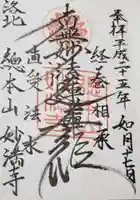 奉拝 平成二十五年 如月七日
経巻相承
南無妙法蓮華経
直受法水
洛北
総本山 妙満寺